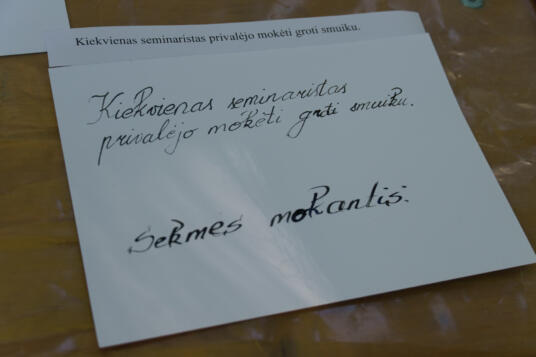 Kiekvienas seminaristas privalėjo mokėti groti smuiku.
Kiekvienas seminaristas
privalėjo mokėti groti smuiku.
Sekmės mokantis: